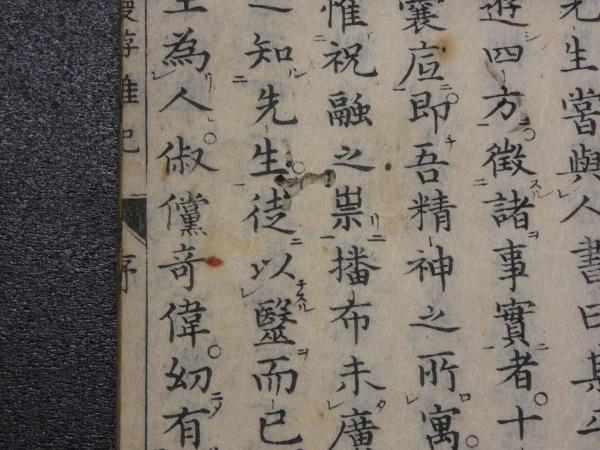 先生嘗與人書曰某
遊四方。徵諸事實者。十
囊底。即吾精神之所寓。
惟祝融之祟播布未廣
之知先生。徒以毉而已
生為人。俶儻奇偉。幼有
游雜記 序